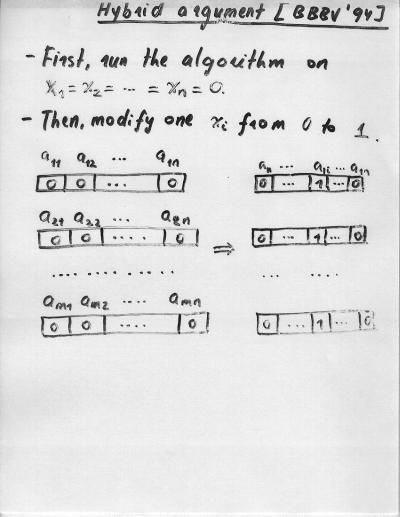 Hybrid argument [BBBV '94]
- First, run the algorithm on
x₁ = x₂ = ... = xₙ = 0.
- Then, modify one xᵢ from 0 to 1.
a₁₁ a₁₂ ... a₁ₙ a₁₁ ... a₁ᵢ ... a₁ₙ
0 0 .... 0 0 ... 1 ... 0
a₂₁ a₂₂ ... a₂ₙ
0 0 ..... 0 ⇒ 0 ... 1 ... 0
.... ... ... ... ... ....
aₘ₁ aₘ₂ .... aₘₙ
0 0 .... 0 0 ... 1 ... 0